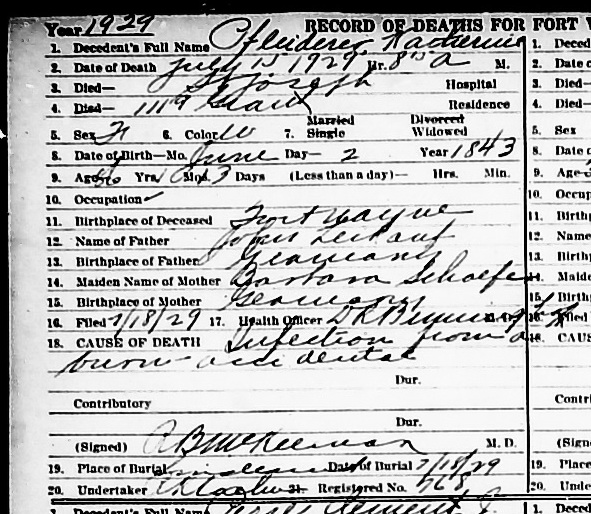 Year 1929 RECORD OF DEATHS FOR FORT W
1. Decedent's Full Name Pfleiderer Katherine 1. Deced
2. Date of Death July 15 1929 Hr. 8 15 a M. 2. Date o
3. Died— St Joseph Hospital 3. Died—
4. Died— 1119 Residence 4. Died—
Married Divorced
5. Sex F 6. Color W 7. Single Widowed 5. Sex
8. Date of Birth—Mo. June Day— 2 Year 1843 8. Date o
9. Age 86 Yrs. 1 Mos. 13 Days (Less than a day)— Hrs. Min. 9. Age
10. Occupation 10. Occup
11. Birthplace of Deceased Fort Wayne 11. Birthp
12. Name of Father John 12. Name
13. Birthplace of Father Germany 13. Birthp
14. Maiden Name of Mother Barbara Schaefer 14. Maide
15. Birthplace of Mother Germany 15. Birthp
16. Filed 7/18/29 17. Health Officer 16. Filed
18. CAUSE OF DEATH Infection from a 18. CAUS
burn accidental
Dur.
Contributory Contri
Dur.
(Signed) M. D. (Sign
19. Place of Burial Lindenwood Date of Burial 7/18/29 19. Place
20. Undertaker 21. Registered No. 768 20. Under
1. Decedent's Full Name Clement 1. Deced